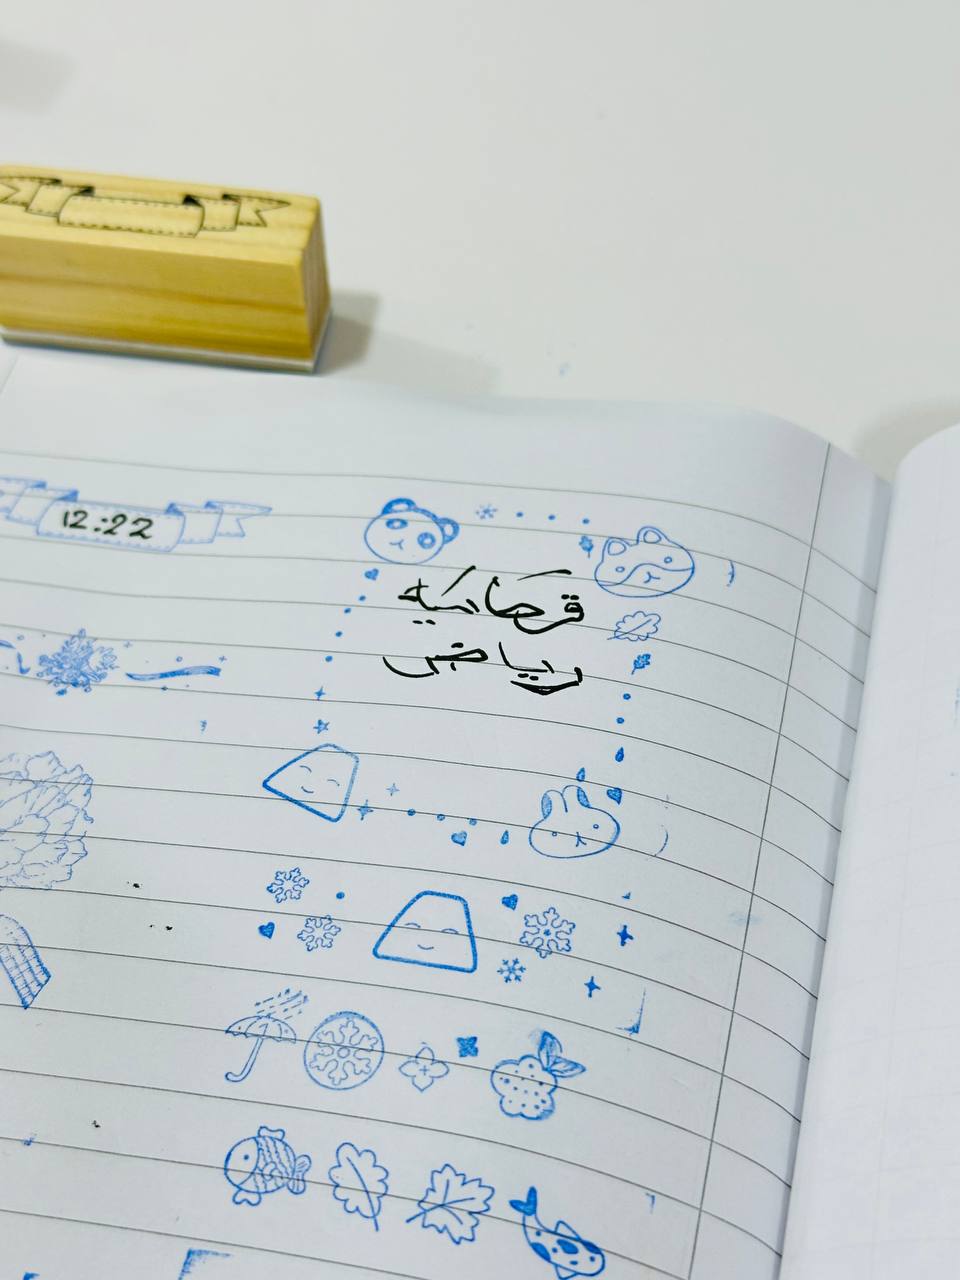 12:22
قرطاسية
رياض